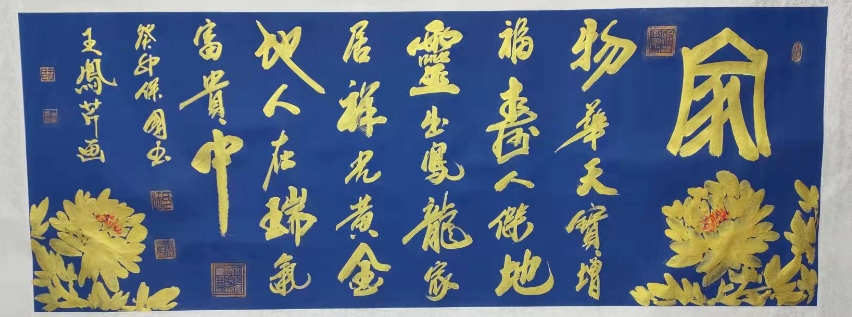 家
物華天寶增
福壽人傑地
靈出鳳龍家
居祥光黃金
地人在瑞氣
富貴中
癸卯保國书
王鳳芹画